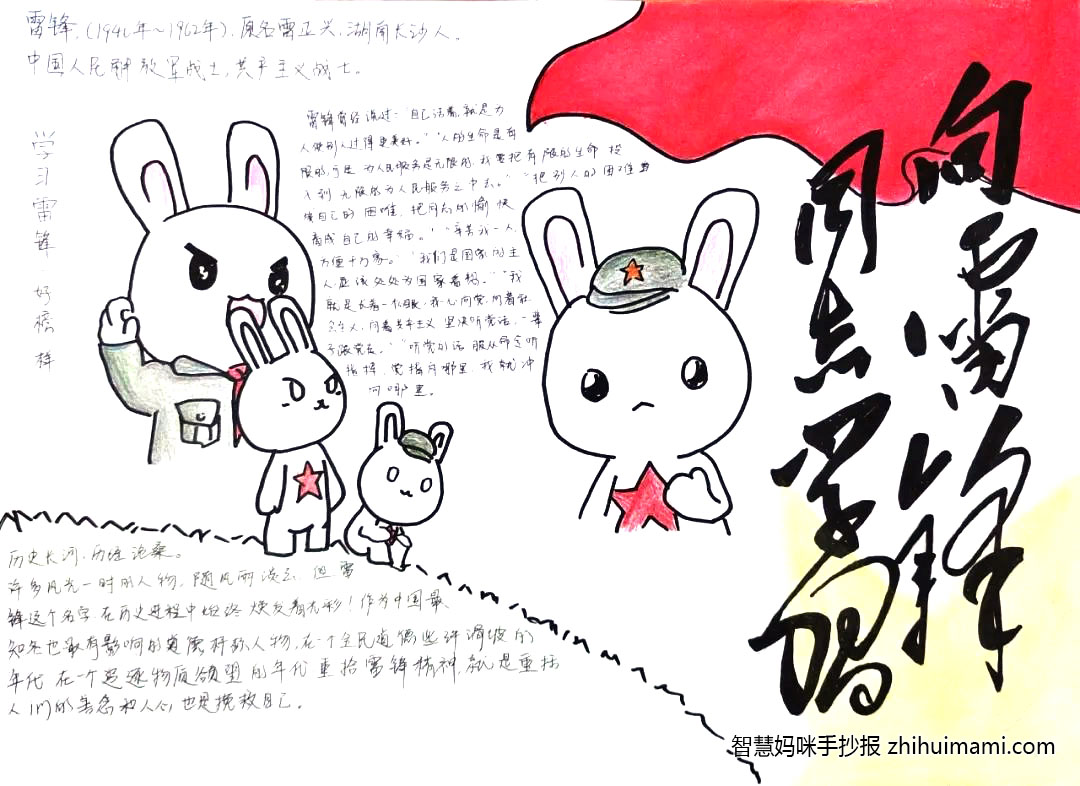 雷锋,(1940年~1962年),原名雷正兴,湖南长沙人。
中国人民解放军战士,共产主义战士。
学习雷锋好榜样
雷锋曾经说过:“自己活着,就是为
人使别人过得更美好。”“人的生命是有
限的,可是,为人民服务是无限的,我要把有限的生命 投
入到无限的为人民服务之中去。”“把别人的困难当
成自己的困难,把同志的愉快
看成自己的幸福。”“辛苦我一人,
方便千万家。”“我们是国家的主
人,应该处处为国家着想。”“我
就是长着一个心眼,我一心向党,向着社
会主义,向着共产主义 坚决听党话,一辈
子跟党走。”“听党的话 服从命令听
指挥,党指向哪里,我就冲
向哪里。
向雷锋
同志学习
历史长河,历经沧桑。
许多风光一时的人物,随风而淡去,但雷
锋这个名字在历史进程中始终焕发着光彩!作为中国最
知名也最有影响的道德标杆人物,在一个全民道德些许滑坡的
年代 在一个追逐物质欲望的年代 重拾雷锋精神,就是重拾
人们的善念和人心,也是挽救自己。
智慧妈咪手抄报 zhihuimami.com